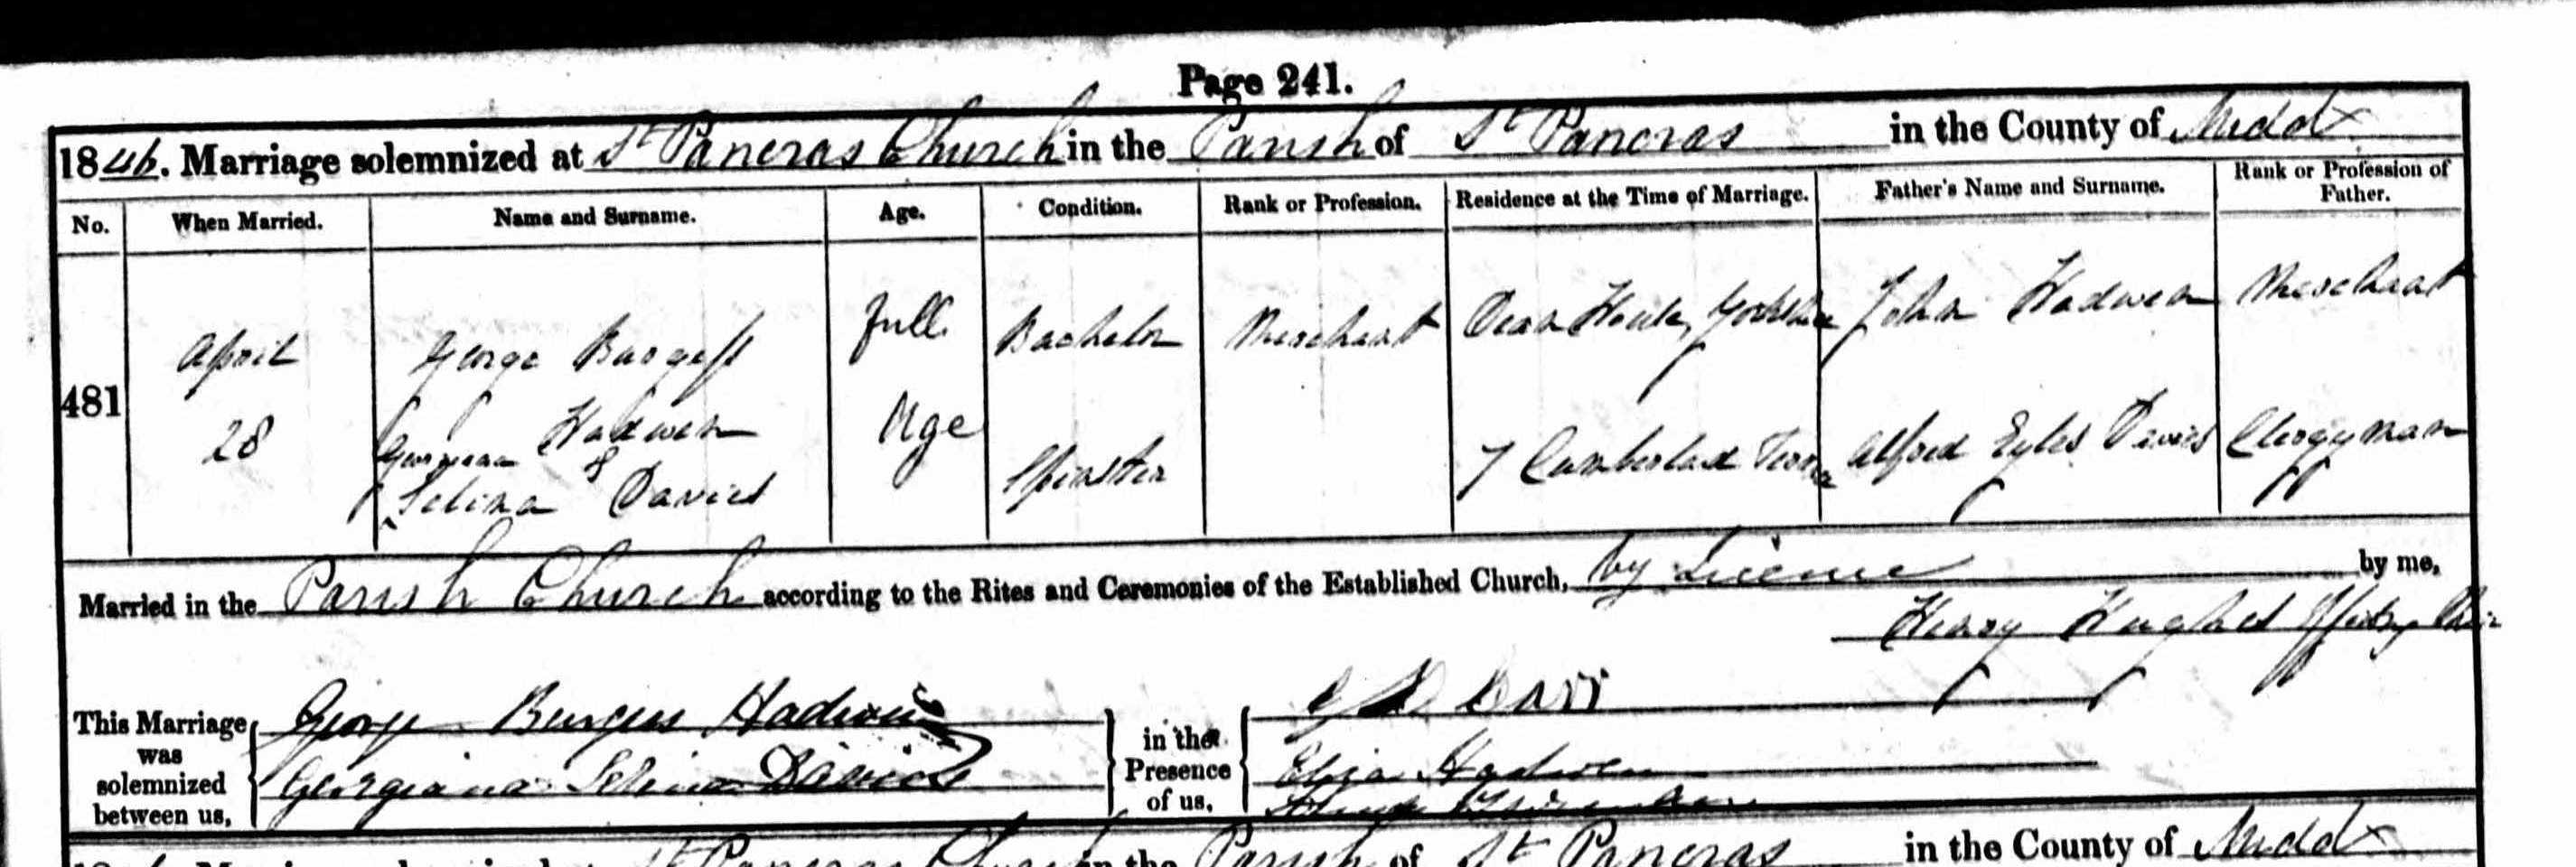 Page 241.
1846. Marriage solemnized at St Pancras Church in the Parish of St Pancras in the County of Middx
No. When Married. Name and Surname. Age. Condition. Rank or Profession. Residence at the Time of Marriage. Father's Name and Surname. Rank or Profession of Father.
481
April 28
George Burgess Hadwen
&
Georgiana Selina Davies
full Age
Bachelor Merchant Dean House, Yorkshire John Hadwen Merchant
Spinster 7 Cumberland Terrace Alfred Eyles Davies Clergyman
Married in the Parish Church according to the Rites and Ceremonies of the Established Church, by Licence by me,
Henry Hughes
This Marriage was solemnized between us,
George Burges Hadwen
Georgiana Selina Davies
in the Presence of us,
Eliza Hadwen
Marriage solemnized at St Pancras Church in the Parish of St Pancras in the County of Middx